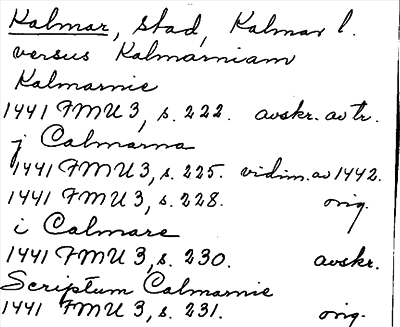 Kalmar, stad, Kalmar l.
versus Kalmarniam
Kalmarnie
1441 FMU 3, s. 222. avskr. av tr.
j Calmarna
1441 FMU 3, s. 225. vidim. av 1442.
1441 FMU 3, s. 228. orig.
i Calmare
1441 FMU 3, s. 230. avskr.
Scriptum Calmarnie
1441 FMU 3, s. 231. orig.